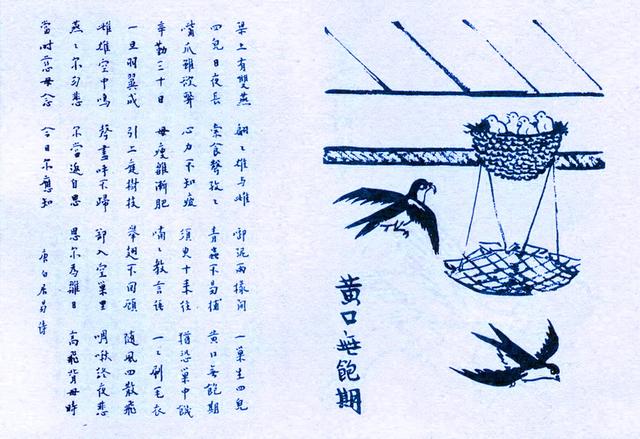 黄口無飽期
梁上有雙燕 翩々雄与雌 啣泥兩椽间 一巢生四兒
四兒日夜長 索食聲孜々 青蟲不易捕 黄口無飽期
觜爪雖欲弊 心力不知疲 須臾十来往 猶恐巢中饑
辛勤三十日 母瘦雛漸肥 喃々教言語 一々刷毛衣
一旦羽翼成 引上庭樹枝 舉翅不回顧 隨風四散飛
雌雄空中鳴 聲盡呼不歸 卻入空巢里 啁啾终夜悲
燕々尔勿悲 尔當返自思 思尔為雛日 高飛背母時
當时 母念 今日尔應知
唐白居易詩